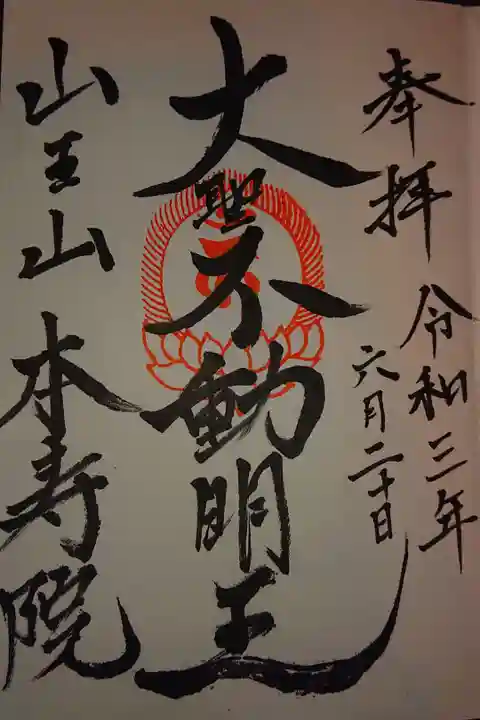 奉拝
令和三年
六月二十日
大聖不動明王
山王山 本寿院